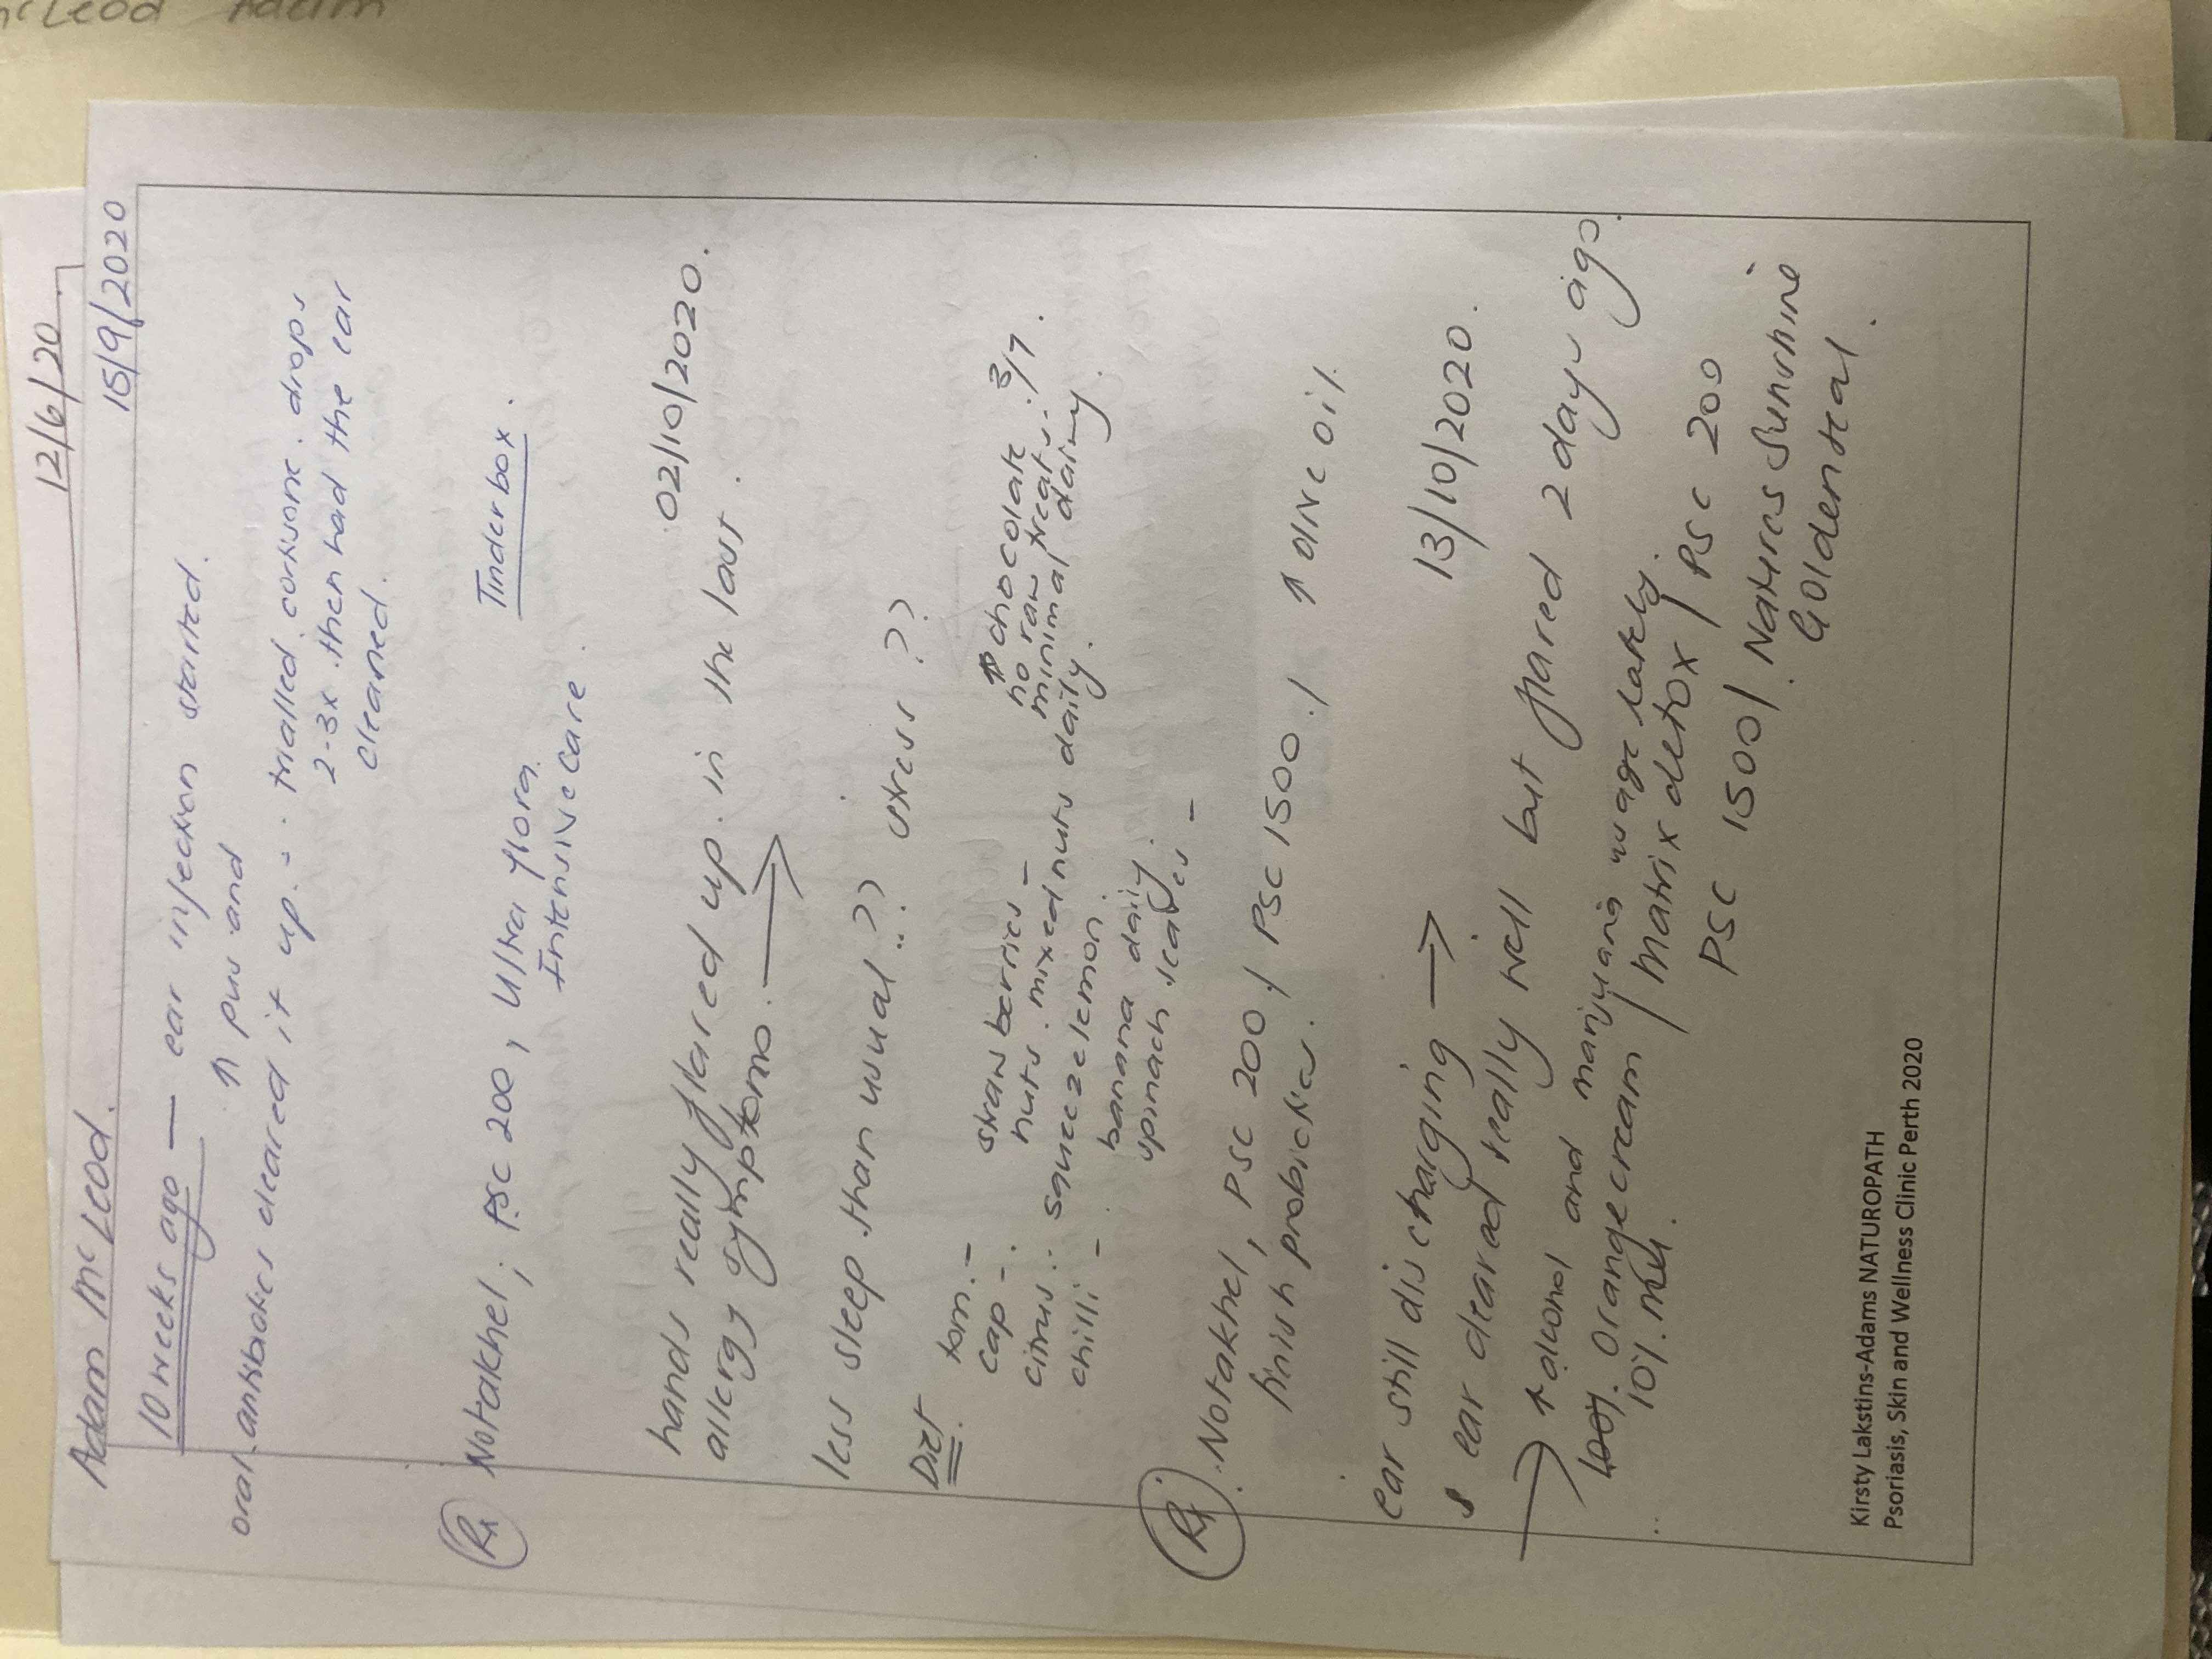 McLeod Adam
12/6/20
Adam McLeod. 15/9/2020
10 weeks ago — ear infection started.
↑ pus and
oral antibiotics cleared it up. - trialled cortisone drops
2-3x then had the ear
cleaned.
Rx Notakhel; PSC 200, Ultra flora Tinderbox.
Intensive care.
02/10/2020.
hands really flared up in the last.
allergy symptoms. →
less sleep than usual?? stress??
Diet.
tom. - strawberries - ↑ chocolate 3/7.
cap - nuts. mixed nuts daily. no raw treats.
citrus: squeeze lemon. minimal dairy.
chilli - banana daily.
spinach leaves -
Rx Notakhel, PSC 200 / PSC 1500 / ↑ olive oil
finish probiotics.
13/10/2020.
ear still discharging →
ear cleared really well but flared 2 days ago.
→ ↑ alcohol and marijuana usage lately.
orange cream / Matrix detox / PSC 200
10%. PSC 1500 / Natures Sunshine
Goldenseal.
Kirsty Lakstins-Adams NATUROPATH
Psoriasis, Skin and Wellness Clinic Perth 2020